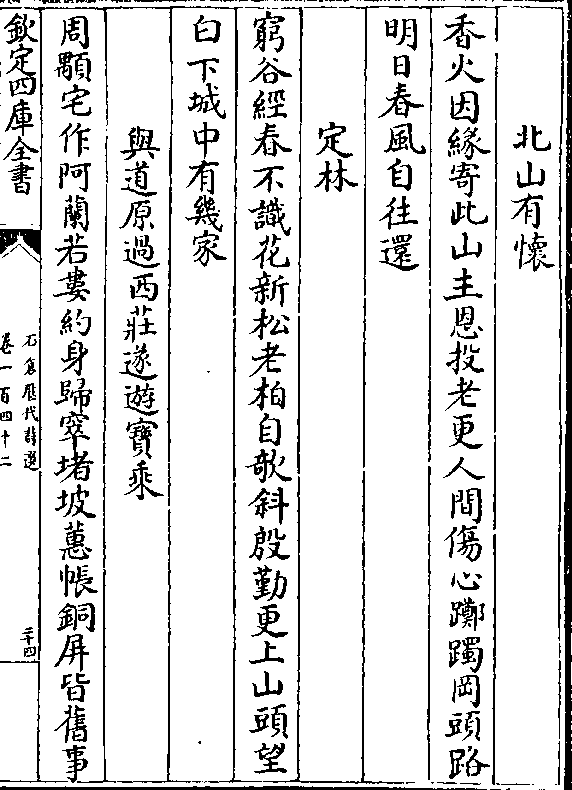 北山有懷
香火因緣寄此山主恩投老更人間傷心躑躅岡頭路
明日春風自往還
定林
窮谷經春不識花新松老柏自欹斜殷勤更上山頭望
白下城中有幾家
與道原過西莊遂遊寶乘
周顒宅作阿蘭若婁約身歸窣堵坡蕙帳銅屏皆舊事
欽定四庫全書
石倉歷代詩選
卷一百四十二
二十四